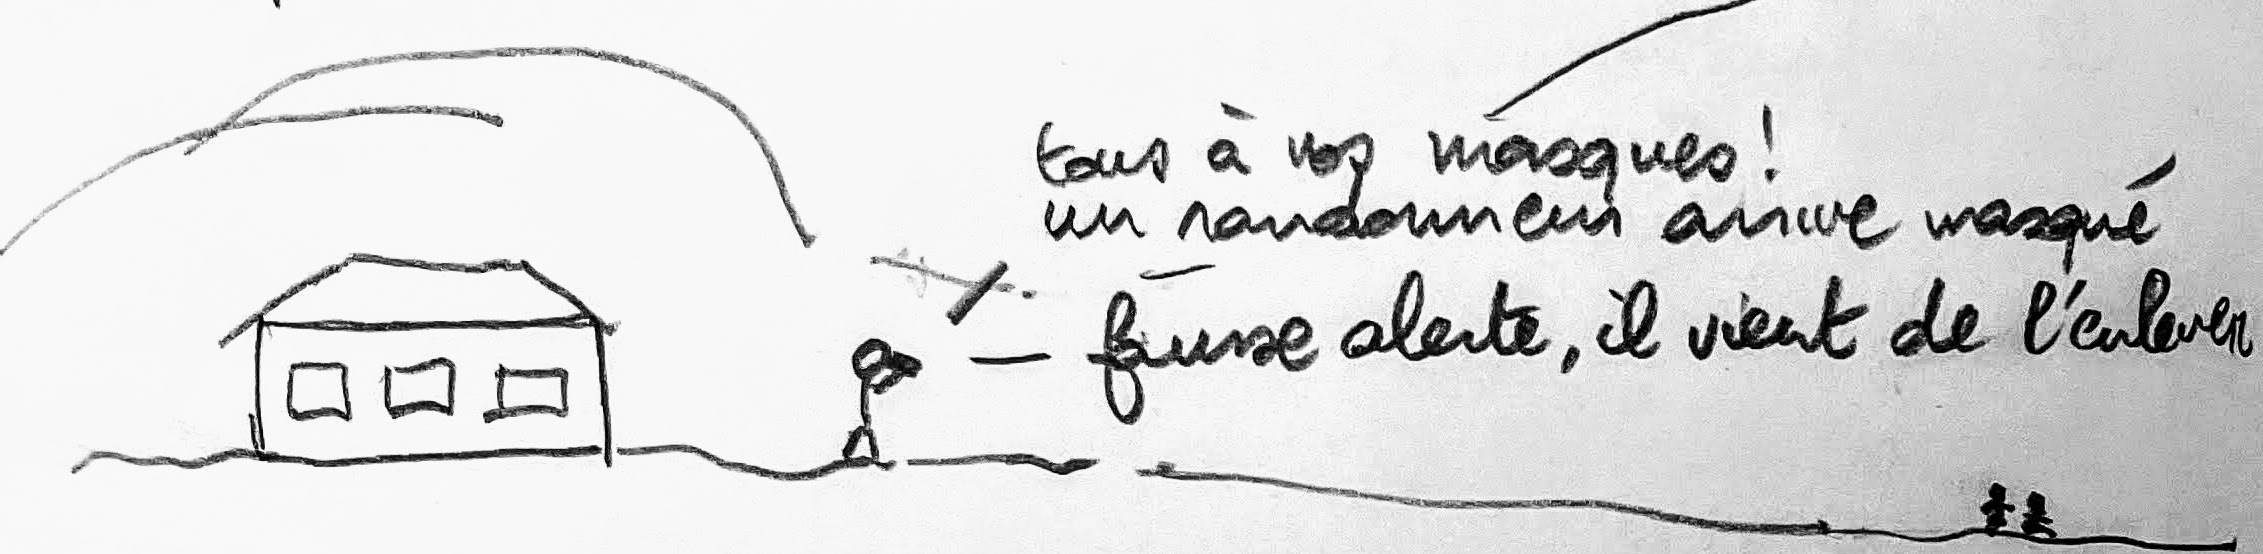 tous à vos masques!
un randonneur arrive masqué
— fausse alerte, il vient de l'enlever